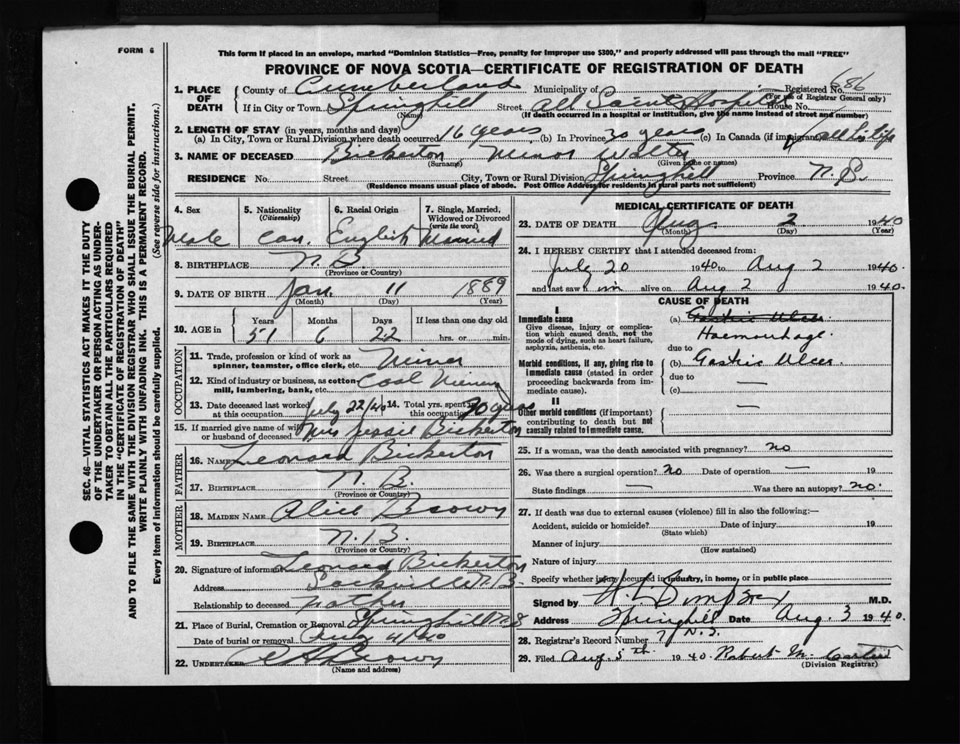 FORM 6
This form if placed in an envelope, marked "Dominion Statistics—Free, penalty for improper use $300," and properly addressed will pass through the mail "FREE"
PROVINCE OF NOVA SCOTIA—CERTIFICATE OF REGISTRATION OF DEATH
SEC. 46—VITAL STATISTICS ACT MAKES IT THE DUTY
OF THE UNDERTAKER OR PERSON ACTING AS UNDER-
TAKER TO OBTAIN ALL THE PARTICULARS REQUIRED
IN THE "CERTIFICATE OF REGISTRATION OF DEATH"
AND TO FILE THE SAME WITH THE DIVISION REGISTRAR WHO SHALL ISSUE THE BURIAL PERMIT.
WRITE PLAINLY WITH UNFADING INK. THIS IS A PERMANENT RECORD.
Every item of information should be carefully supplied. (See reverse side for instructions.)
1. PLACE OF DEATH
County of Cumberland Municipality of Registered No. 686
(For use of Registrar General only)
If in City or Town Springhill Street All Saints Hospital House No.
(Name) (If death occurred in a hospital or institution, give the name instead of street and number)
2. LENGTH OF STAY (in years, months and days)
(a) In City, Town or Rural Division where death occurred 16 years (b) In Province 30 years (c) In Canada (if immigrant) all his life
3. NAME OF DECEASED Bickerton, Minor Walter
(Surname) (Given name or names)
RESIDENCE No. Street City, Town or Rural Division Springhill Province N.S.
(Residence means usual place of abode. Post Office Address for residents in rural parts not sufficient)
4. Sex Male
5. Nationality (Citizenship) Can.
6. Racial Origin English
7. Single, Married, Widowed or Divorced (write the word) Married
8. BIRTHPLACE N.B.
(Province or Country)
9. DATE OF BIRTH Jan. 11 1889
(Month) (Day) (Year)
10. AGE in Years Months Days If less than one day old
51 6 22 hrs. or min.
OCCUPATION
11. Trade, profession or kind of work as spinner, teamster, office clerk, etc. Miner
12. Kind of industry or business, as cotton mill, lumbering, bank, etc. Coal Mining
13. Date deceased last worked at this occupation July 22/40 14. Total yrs. spent in this occupation 30 years
15. If married give name of wife or husband of deceased Mrs Jessie Bickerton
FATHER
16. NAME Leonard Bickerton
17. BIRTHPLACE N.B.
(Province or Country)
MOTHER
18. MAIDEN NAME Alice Brown
19. BIRTHPLACE N.B.
(Province or Country)
20. Signature of informant Leonard Bickerton
Address Sackville N.B.
Relationship to deceased Father
21. Place of Burial, Cremation or Removal Springhill N.S
Date of burial or removal Aug 4/40
22. UNDERTAKER Brown
(Name) (Address)
MEDICAL CERTIFICATE OF DEATH
23. DATE OF DEATH Aug. 2 1940
(Month) (Day) (Year)
24. I HEREBY CERTIFY that I attended deceased from:
July 20 1940 to Aug 2 1940.
and last saw him alive on Aug 2 1940.
CAUSE OF DEATH
I
Immediate cause
Give disease, injury or complication which caused death, not the mode of dying, such as heart failure, asphyxia, asthenia, etc.
(a) Gastric Ulcer
Haemorrhage
due to
Morbid conditions, if any, giving rise to immediate cause (stated in order proceeding backwards from immediate cause).
(b) Gastric Ulcer
due to —
(c)
II
Other morbid conditions (if important) contributing to death but not causally related to immediate cause. —
25. If a woman, was the death associated with pregnancy? no
26. Was there a surgical operation? no Date of operation — 19
State findings — Was there an autopsy? no.
27. If death was due to external causes (violence) fill in also the following:—
Accident, suicide or homicide? Date of injury 19
(State which)
Manner of injury
(How sustained)
Nature of injury
Specify whether injury occurred in industry, in home, or in public place
Signed by M.D.
Address Springhill Date Aug. 3 1940.
28. Registrar's Record Number
29. Filed Aug. 5th 1940. Robert M.
(Division Registrar)